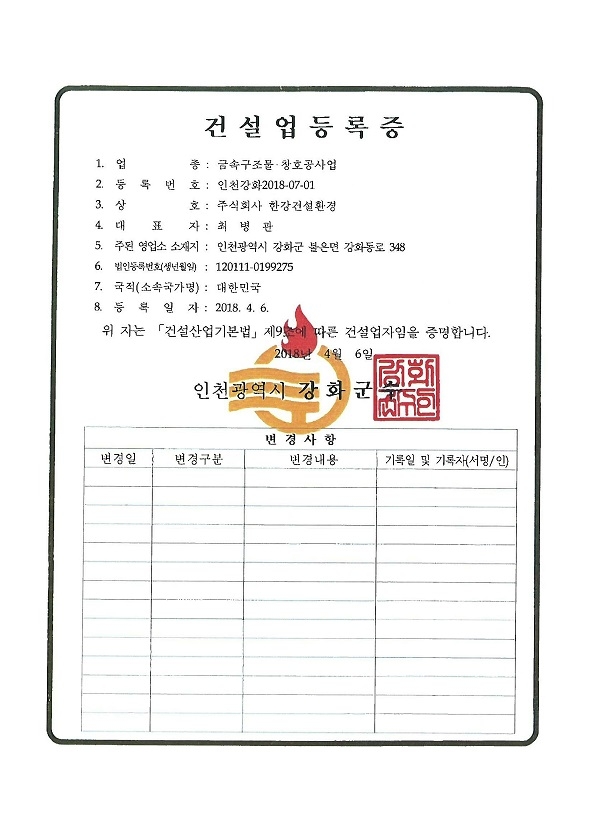 건설업등록증
1. 업 종 : 금속구조물·창호공사업
2. 등 록 번 호 : 인천강화2018-07-01
3. 상 호 : 주식회사 한강건설환경
4. 대 표 자 : 최 병 관
5. 주된 영업소 소재지 : 인천광역시 강화군 불은면 강화동로 348
6. 법인등록번호(생년월일) : 120111-0199275
7. 국적(소속국가명) : 대한민국
8. 등 록 일 자 : 2018. 4. 6.
위 자는 「건설산업기본법」 제9조에 따른 건설업자임을 증명합니다.
2018년 4월 6일
인천광역시 강화군수
변 경 사 항
변경일 변경구분 변경내용 기록일 및 기록자(서명/인)